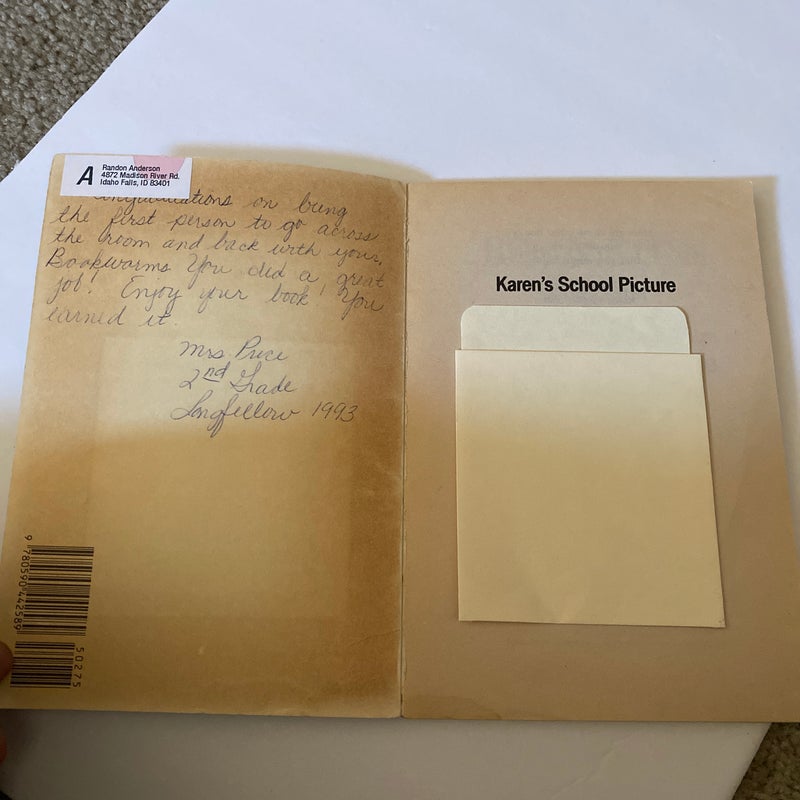 A
Randon Anderson
4872 Madison River Rd.
Idaho Falls, ID 83401
on being
the first person to go across
the room and back with your
Bookworms. You did a great
job! Enjoy your book! You
earned it.
Mrs. Price
2nd Grade
Longfellow 1993
9 780590 442589
50275
Karen's School Picture